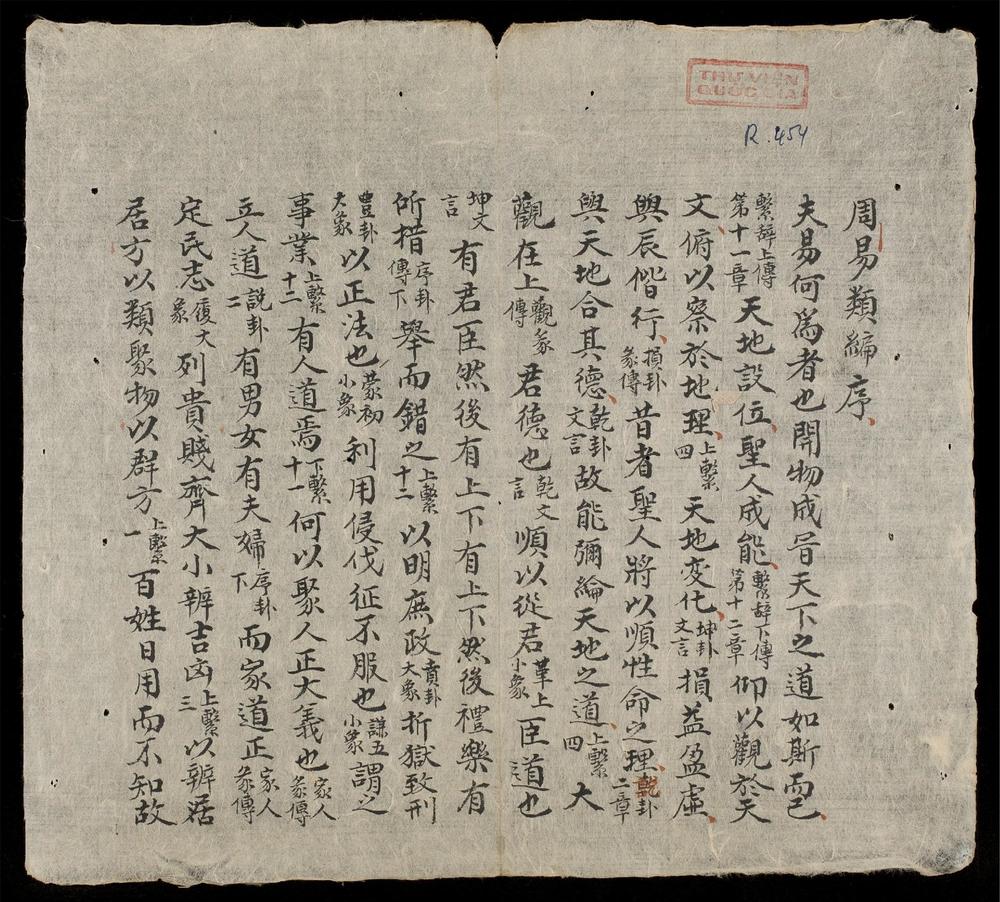 THƯ VIỆN
QUỐC GIA
R.454
周易類編序
夫易何爲者也開物成冐天下之道如斯而已
繫辭上傳第十一章天地設位聖人成能繫辭下傳第十二章仰以觀於天
文俯以察於地理上繫四天地变化坤卦文言損益盈虚
與辰偕行損卦彖傳昔者聖人將以順性命之理乾卦二章
與天地合其德乾卦文言故能彌綸天地之道上繫四大
觀在上觀彖傳君德也乾文言順以從君革上小象臣道也
坤文言有君臣然後有上下有上下然後禮樂有
所措序卦傳下舉而錯之上繫十二以明庶政賁卦大象折獄致刑
豊卦大象以正法也蒙初小象利用侵伐征不服也謙五小象謂之
事業上繫十二有人道焉下繫十一何以聚人正大義也家人彖傳
立人道說卦二有男女有夫婦序卦下而家道正家人彖傳
定民志履大象列貴賤齊大小辨吉凶上繫三以辨居
居方以類聚物以群方上繫一百姓日用而不知故